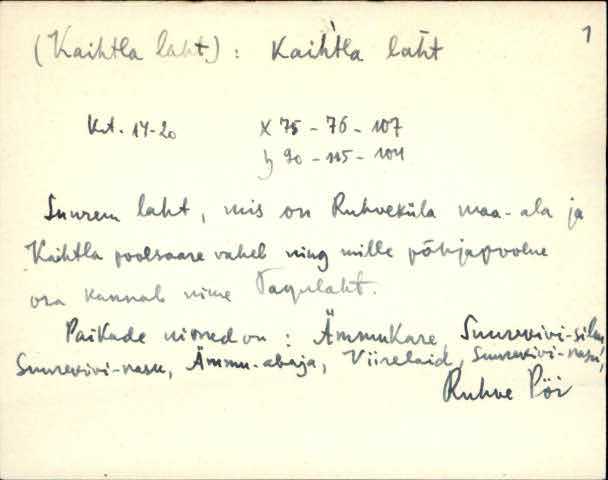 1
(Kaihtla laht) : Kaih̀tla laht
Krt. 14-20 X 75 - 76 - 107
y 90 - 115 - 104
Suurem laht, mis on Ruhveküla maa-ala ja
Kaihtla poolsaare vahel ning mille põhjapoolne
osa kannab nime Tagulaht.
Paikade nimed on : Ämmukare, Suurekivi-silm,
Suurekivi-nasu, Ämmu-abaja, Viirelaid, Suurekivi-nasu,
Ruhve Pöi